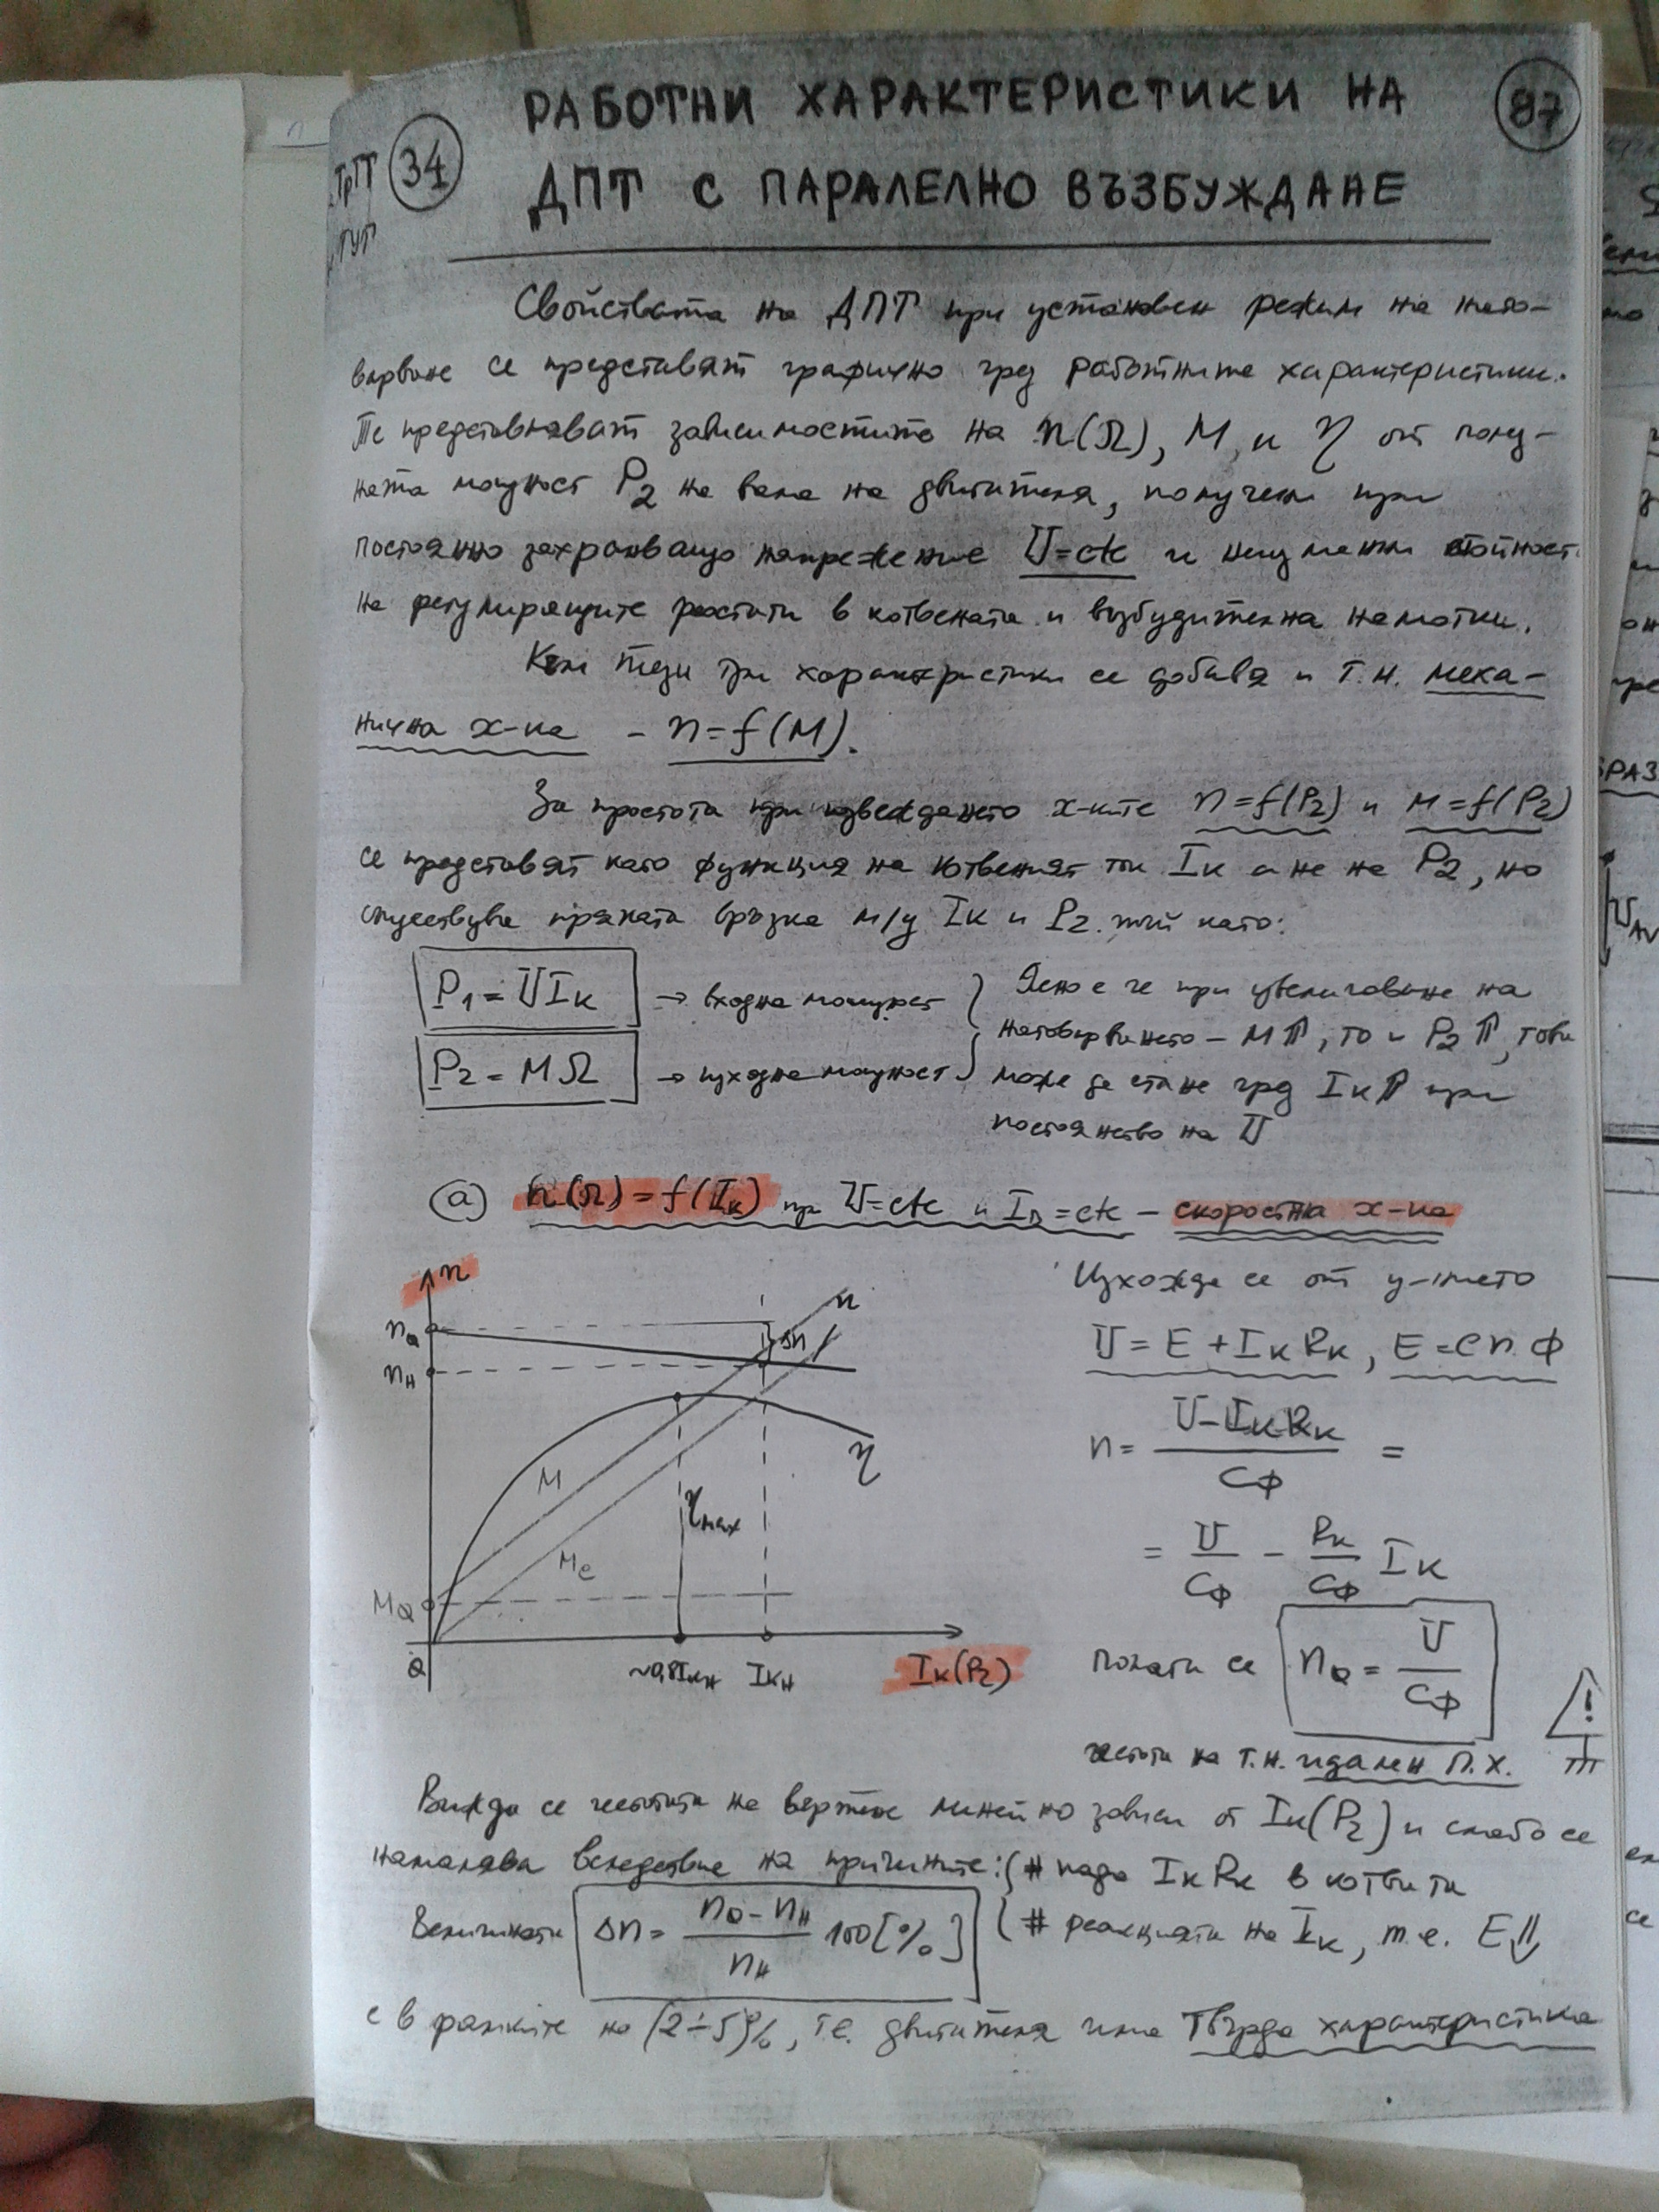 34
РАБОТНИ ХАРАКТЕРИСТИКИ НА
87
ДПТ С ПАРАЛЕЛНО ВЪЗБУЖДАНЕ
Свойствата на ДПТ при установен режим на нато-
варване се представят графично чрез работните характеристики.
Те представляват зависимостите на n(Ω), M, и η от полез-
ната мощност P2 на вала на двигателя, получени при
постоянно захранващо напрежение U=ctc и неизменни стойност.
на регулиращите реостати в котвената и възбудителна намотки.
Към тези три характеристики се добавя и т.н. меха-
нична х-ка – n=f(M).
За простота при извеждането х-ките n=f(P2) и M=f(P2)
се представят като функция на котвеният ток Iк а не на P2, но
съществува пряката връзка м/у Iк и P2. тъй като:
P1=UIк → входна мощност
P2=MΩ → изходна мощност
Ясно е че при увеличаване на
натоварването – M⇑, то и P2⇑, това
може да стане чрез Iк⇑ при
постоянство на U
а) n(Ω)=f(Iк) при U=ctc и Iв=ctc – скоростна х-ка
n
n0
nн
Δn
n
M
Mе
M0
η
ηmax
0
~0,8Iкн
Iкн
Iк(P2)
Изхожда се от у-нието
U=E+IкRк, E=cnФ
n= (U-IкRк)/(cФ) =
= U/(cФ) - Rк/(cФ) Iк
Полага се n0= U/(cФ)
честота на т.н. идален П.Х.
!
Вижда се честотата на въртене линейно зависи от Iк(P2) и слабо се
намалява вследствие на причините: # пада IкRк в котвата
# реакцията на Iк, т.е. E⇓
Величината Δn= (n0-nн)/nн 100[%]
е в рамките на (2÷5)%, т.е. двигателя има твърда характеристика